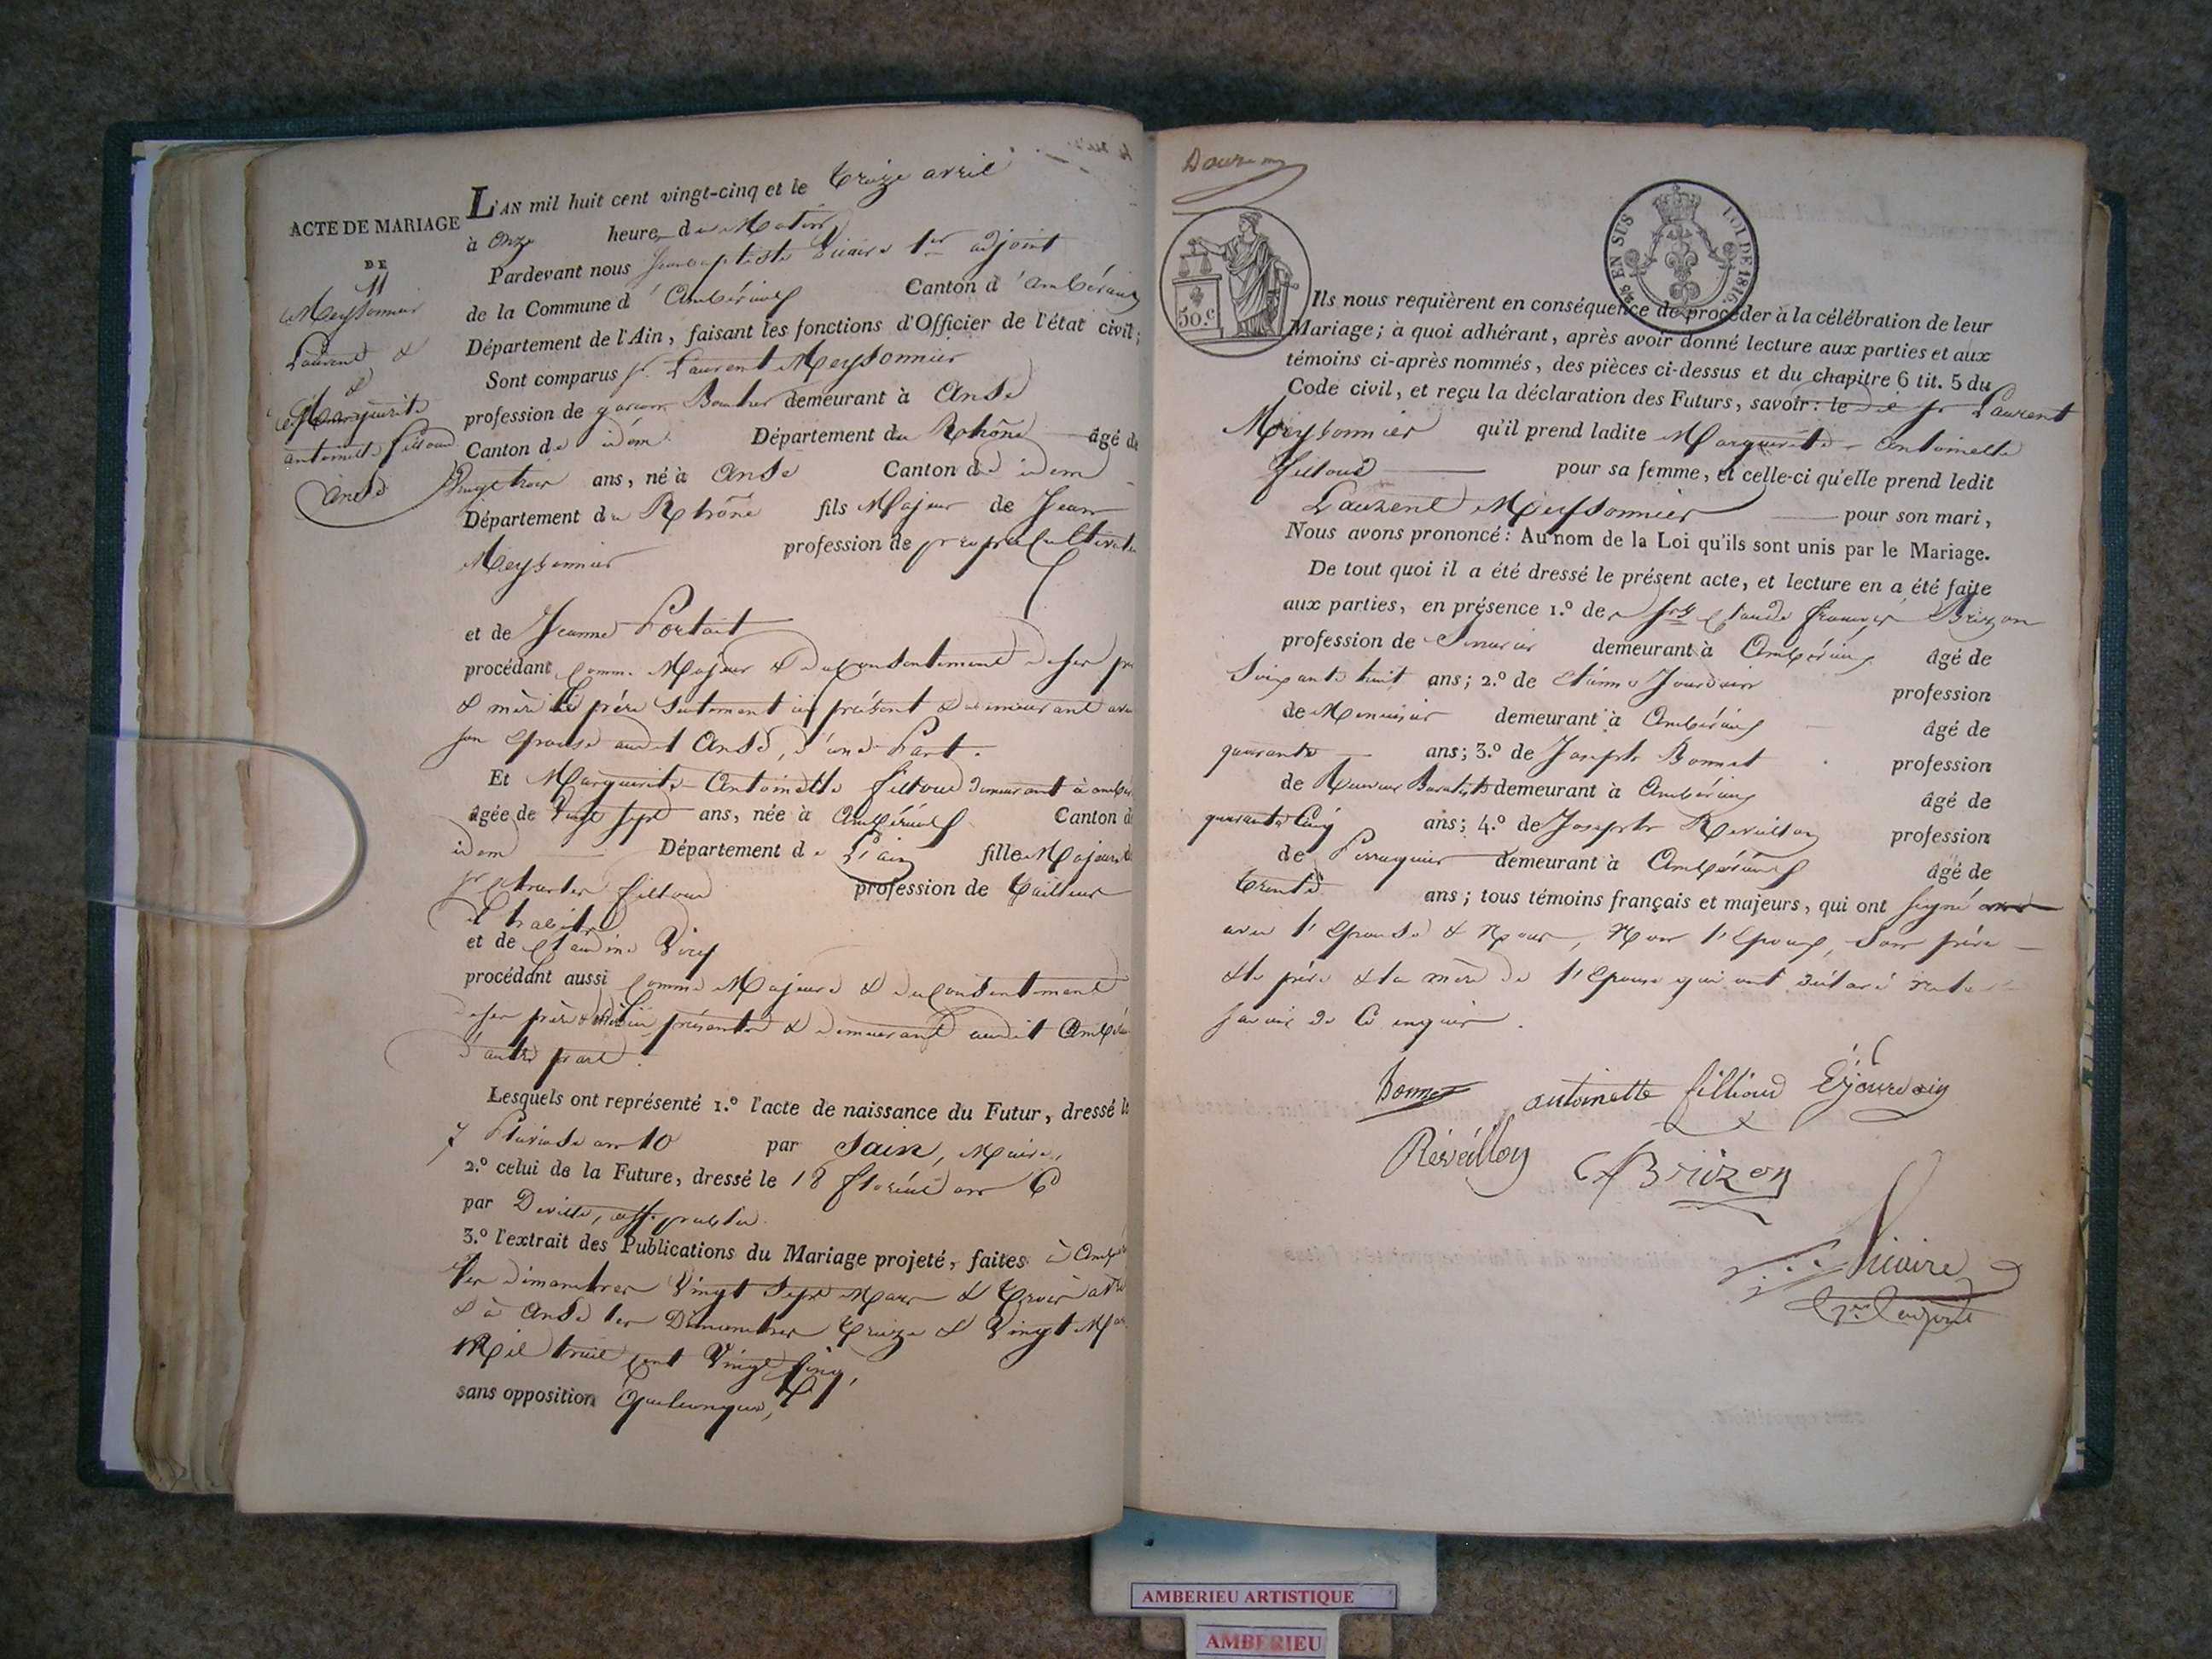 ACTE DE MARIAGE
DE
11
Meyssonnier
Laurent &
&
Marguerite
antoinette filloud
Anse
L'AN mil huit cent vingt-cinq et le treize avril
à Onze heures du Matin
Pardevant nous Jean baptiste Vicaire 1er adjoint
de la Commune d'Ambérieux Canton d'Ambérieux
Département de l'Ain, faisant les fonctions d'Officier de l'état civil;
Sont comparus sr. Laurent Meyssonnier
profession de garçon demeurant à Anse
Canton de idem Département du Rhône âgé de
Vingt trois ans, né à Anse Canton de idem
Département du Rhône fils Majeur de Jean
Meyssonnier profession de propre Cultivateur
et de Jeanne Portait
procédant comme Majeur & du consentement de ses père
& mère le père seulement ici présent & demeurant avec
son Epouse audit Anse, d'une Part.
Et Marguerite Antoinette filloud demeurant à ambér
âgée de Vingt sept ans, née à Ambérieux Canton d
idem Département de L'ain fille Majeure de
sr Charles filloud profession de tailleur
d'habits
et de Claudine
procédant aussi comme Majeure & du consentement
de ses père & mère ici présents & demeurant audit Ambér
d'autre part.
Lesquels ont représenté 1.º l'acte de naissance du Futur, dressé le
7 Pluviose an 10 par Sain, Maire,
2.º celui de la Future, dressé le 18 floréal an 6
par Deville, off. public
3.º l'extrait des Publications du Mariage projeté, faites à Ambér
les dimanches Vingt Sept Mars & trois avril
& à Anse les Dimanches treize & Vingt Mars
Mil huit cent Vingt Cinq,
sans opposition Quelconque,
50.c
EN SUS LOI DE 1816.
Ils nous requièrent en conséquence de procéder à la célébration de leur
Mariage; à quoi adhérant, après avoir donné lecture aux parties et aux
témoins ci-après nommés, des pièces ci-dessus et du chapitre 6 tit. 5 du
Code civil, et reçu la déclaration des Futurs, savoir: le dit sr Laurent
Meyssonnier qu'il prend ladite Marguerite Antoinette
filloud pour sa femme, et celle-ci qu'elle prend ledit
Laurent Meyssonnier pour son mari,
Nous avons prononcé: Au nom de la Loi qu'ils sont unis par le Mariage.
De tout quoi il a été dressé le présent acte, et lecture en a été faite
aux parties, en présence 1.º de srs Claude françois Brizon
profession de demeurant à Ambérieux âgé de
Soixante huit ans; 2.º de Etienne Jourdain profession
de Menuisier demeurant à Ambérieux âgé de
quarante ans; 3.º de Joseph Bonnet profession
de demeurant à Ambérieux âgé de
quarante Cinq ans; 4.º de Joseph Reveillon profession
de Perruquier demeurant à Ambérieux âgé de
trente ans; tous témoins français et majeurs, qui ont signé
avec l'Epouse & Nous, Non l'Epoux, son père
& le père & la mère de l'Epouse qui ont déclaré ne le
savoir de ce enquis.
Bonnet antoinette fillioud Ejourdain
Réveillon CfBrizon
Vicaire
1er adjoint
AMBERIEU ARTISTIQUE
AMBERIEU